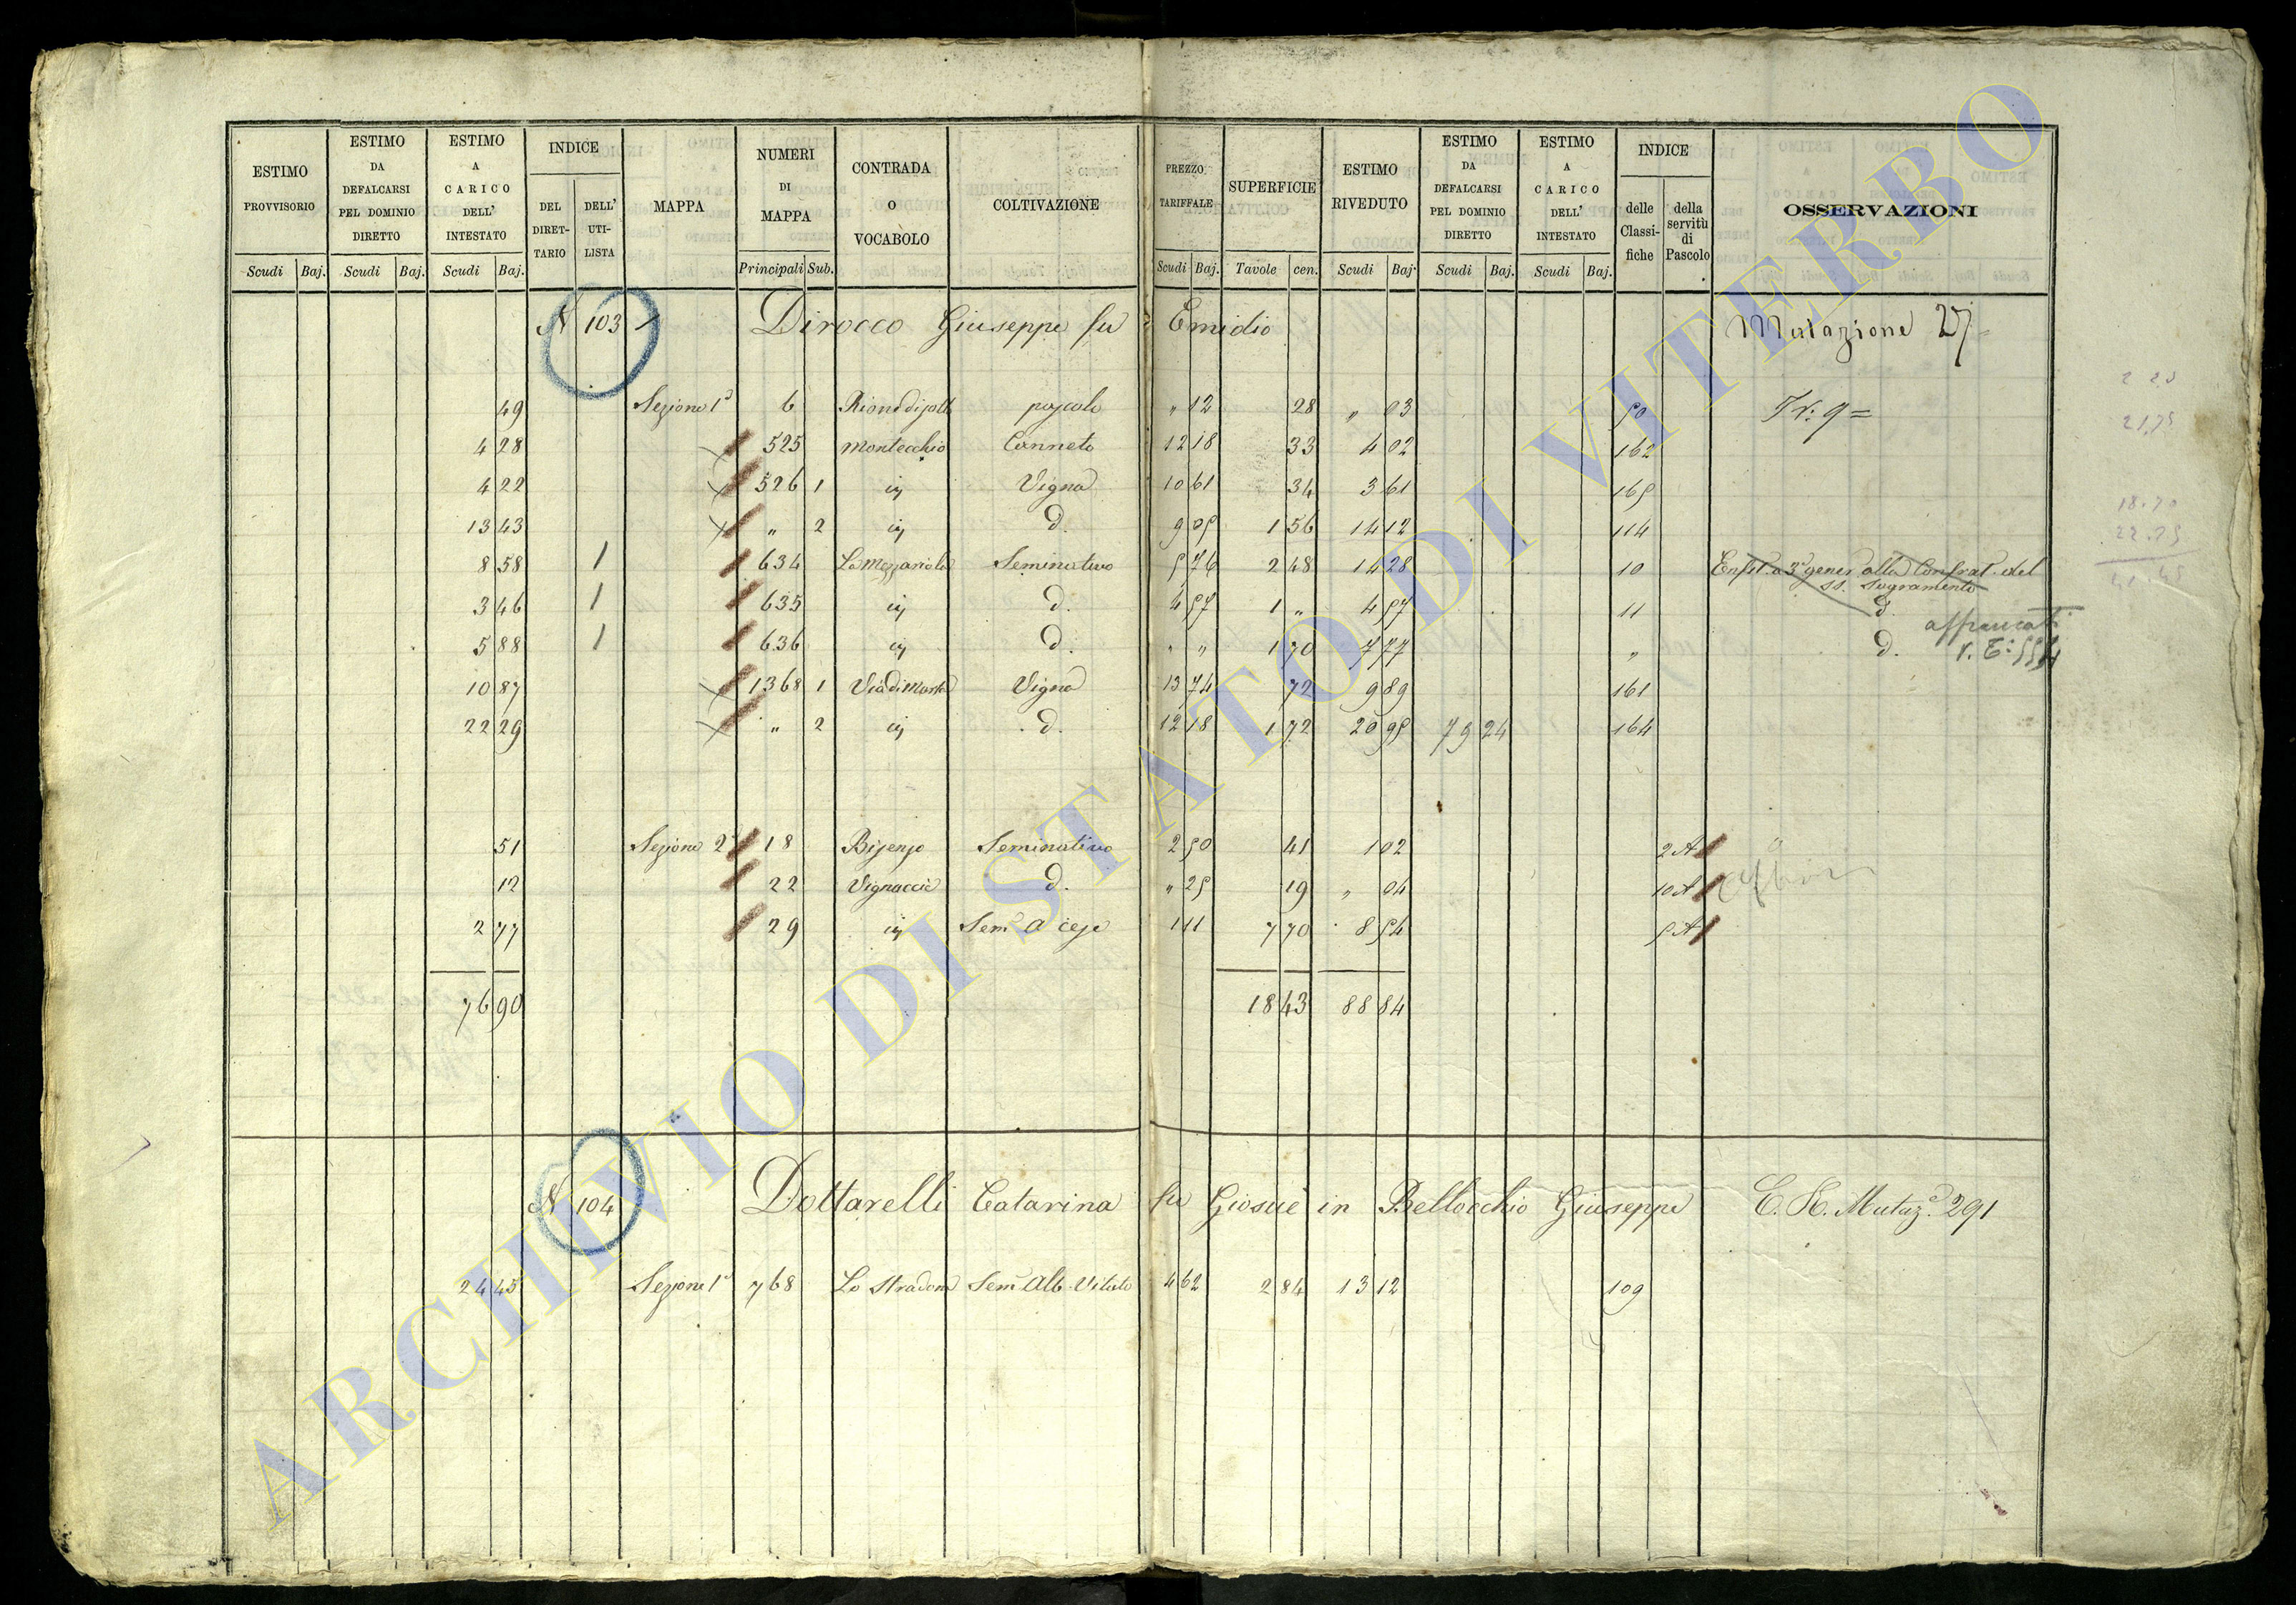 ESTIMO PROVVISORIO Scudi Baj.
ESTIMO DA DEFALCARSI PEL DOMINIO DIRETTO Scudi Baj.
ESTIMO A CARICO DELL' INTESTATO Scudi Baj.
INDICE DEL DIRET- TARIO DELL' UTI- LISTA
MAPPA
NUMERI DI MAPPA Principali Sub.
CONTRADA O VOCABOLO
COLTIVAZIONE
PREZZO TARIFFALE Scudi Baj.
SUPERFICIE Tavole cen.
ESTIMO RIVEDUTO Scudi Baj
ESTIMO DA DEFALCARSI PEL DOMINIO DIRETTO Scudi Baj.
ESTIMO A CARICO DELL' INTESTATO Scudi Baj.
INDICE delle Classi- fiche della servitù di Pascolo
OSSERVAZIONI
N 103 Dirocco Giuseppe fu Emidio Mutazione 27
49 Sezione 1ª 6 pascolo " 12 28 " 03 50 N: 9 =
4 28 525 Montecchio Canneto 12 18 33 4 02 162
4 22 526 1 ivi Vigna 10 61 34 3 61 165
13 43 " 2 ivi d. 9 05 1 56 14 12 114
8 58 1 634 Seminativo 5 76 2 48 14 28 10 Enfit. a 3ª gener. alla Confrat. del SS. Sagramento
3 46 1 635 ivi d. 4 57 1 " 4 57 11 d. affrancati
5 88 1 636 ivi d. " " 1 70 7 77 " d.
10 87 1368 1 Via di Marta Vigna 13 74 72 9 89 161
22 29 " 2 ivi d. 12 18 1 72 20 95 79 24 164
51 Sezione 2ª 18 Bisenzo Seminativo 2 50 41 1 02 2 A
12 22 Vignaccie d. " 25 19 " 04 10 A
2 77 29 ivi 1 11 7 70 8 54 5 A
76 90 18 43 88 84
N 104 Dottarelli Catarina fu Giosuè in Bellocchio Giuseppe Mutaz.e 291
24 45 Sezione 1ª 768 Lo Stradone Sem. Alb. Vitato 4 62 2 84 13 12 109
18.70
22.75
41.45
ARCHIVIO DI STATO DI VITERBO